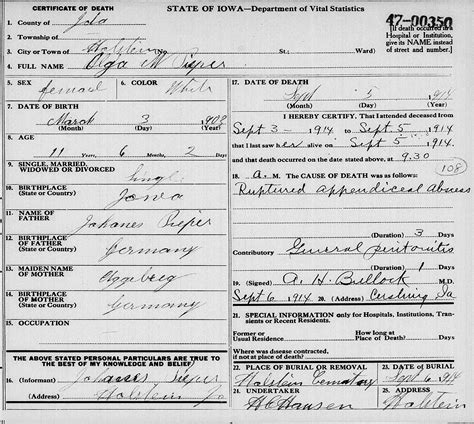 CERTIFICATE OF DEATH
STATE OF IOWA—Department of Vital Statistics
47-00350
1. County of Ida
2. Township of
3. City or Town of Holstein
4. FULL NAME Olga M Pieper
(If death occurred in a Hospital or Institution, give its NAME instead of street and number.)
5. SEX
6. COLOR White
7. DATE OF BIRTH
March 3 1903
(Month) (Day) (Year)
8. AGE
11 Years 6 Months 2 Days
9. SINGLE, MARRIED, WIDOWED OR DIVORCED
Single
10. BIRTHPLACE
(State or Country)
Iowa
11. NAME OF FATHER
Johanes Pieper
12. BIRTHPLACE OF FATHER
(State or Country)
Germany
13. MAIDEN NAME OF MOTHER
14. BIRTHPLACE OF MOTHER
(State or Country)
Germany
15. OCCUPATION
THE ABOVE STATED PERSONAL PARTICULARS ARE TRUE TO THE BEST OF MY KNOWLEDGE AND BELIEF
16. (Informant) Johanes Pieper
(Address) Holstein Ia
17. DATE OF DEATH
Sept 5 1914
(Month) (Day) (Year)
I HEREBY CERTIFY, That I attended deceased from
Sept 3 - 1914 to Sept 5 1914
that I last saw her alive on Sept 5 1914
and that death occurred on the date stated above, at
9.30
A. M.
108
18. THE CAUSE OF DEATH was as follows:
Ruptured appendiceal abscess
(Duration) 3 Days
Contributory General peritonitis
(Duration) 1 Days
19. (Signed) A. H. Bullock M.D.
Sept 6, 1914 20. (Address) Cushing Ia
21. SPECIAL INFORMATION only for Hospitals, Institutions, Transients or Recent Residents.
Former or Usual Residence
How long at Place of Death? Days
Where was disease contracted,
if not at place of death?
22. PLACE OF BURIAL OR REMOVAL
Holstein Cemetery
23. DATE OF BURIAL
Sept 6 1914
24. UNDERTAKER
HC Hansen
25. ADDRESS
Holstein